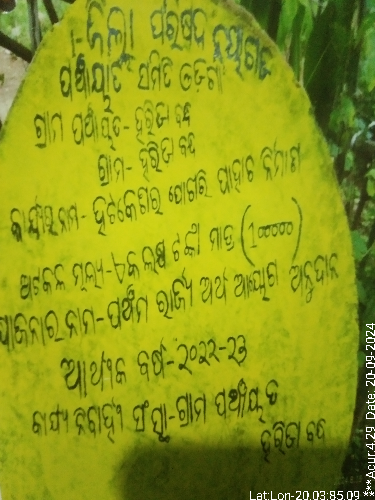 ଜିଲ୍ଲା ପରିଷଦ ନୟାଗଡ
ପଞ୍ଚାୟତ ସମିତି ଓଡଗାଁ
ଗ୍ରାମ ପଞ୍ଚାୟତ- ହରିଡା ବନ୍ଧ
ଗ୍ରାମ- ହରିଡା ବନ୍ଧ
କାର୍ଯ୍ୟର ନାମ- ହଟକେଶ୍ୱର ପୋଖରି ପାହାଚ ନିର୍ମାଣ
ଅଟକଳ ମୂଲ୍ୟ- ୧ ଲକ୍ଷ ଟଙ୍କା ମାତ୍ର (100000)
ଯୋଜନାର ନାମ- ପଞ୍ଚମ ରାଜ୍ୟ ଅର୍ଥ ଆୟୋଗ ଅନୁଦାନ
ଆର୍ଥିକ ବର୍ଷ- ୨୦୨୨-୨୩
କାର୍ଯ୍ୟ ନିର୍ବାହୀ ସଂସ୍ଥା- ଗ୍ରାମ ପଞ୍ଚାୟତ
ହରିଡା ବନ୍ଧ
Lat:Lon-20.03:85.09 ***Acur:4.29 Date: 20-09-2024